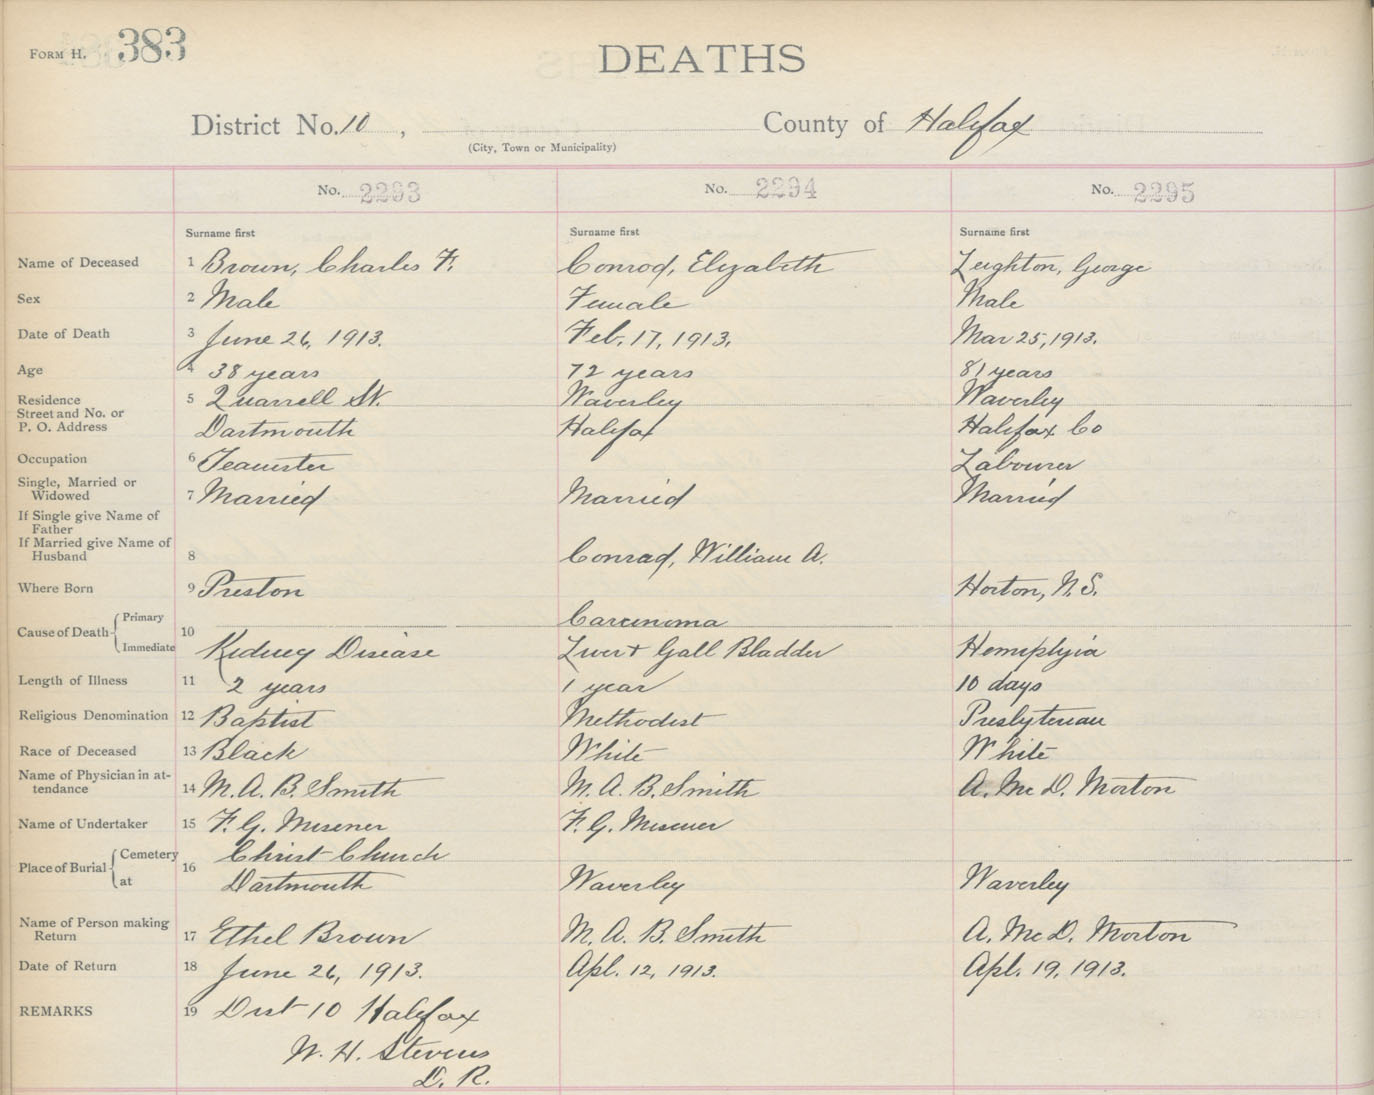 FORM H. 383
DEATHS
District No. 10 , County of Halifax
(City, Town or Municipality)
No. 2293 No. 2294 No. 2295
Surname first Surname first Surname first
Name of Deceased 1 Brown, Charles F. Conrod, Elizabeth Leighton, George
Sex 2 Male Female Male
Date of Death 3 June 26, 1913. Feb. 17, 1913. Mar 25, 1913.
Age 4 38 years 72 years 81 years
Residence 5 Quarrell St. Waverley Waverley
Street and No. or
P. O. Address Dartmouth Halifax Halifax Co
Occupation 6 Teamster Labourer
Single, Married or
Widowed 7 Married Married Married
If Single give Name of
Father
If Married give Name of
Husband 8 Conrad, William A.
Where Born 9 Preston Horton, N.S.
Primary Carcinoma
Cause of Death 10
Immediate Kidney Disease Liver + Gall Bladder Hemiplyia
Length of Illness 11 2 years 1 year 10 days
Religious Denomination 12 Baptist Methodist Presbyterian
Race of Deceased 13 Black White White
Name of Physician in at-
tendance 14 M. A. B. Smith M. A. B. Smith A. Mc D. Morton
Name of Undertaker 15 F. G. Misener F. G. Misener
Cemetery Christ Church
Place of Burial 16
at Dartmouth Waverley Waverley
Name of Person making
Return 17 Ethel Brown M. A. B. Smith A. Mc D. Morton
Date of Return 18 June 26, 1913. Apl. 12, 1913. Apl. 19, 1913.
REMARKS 19 Dist 10 Halifax
W. H. Stevens
D. R.